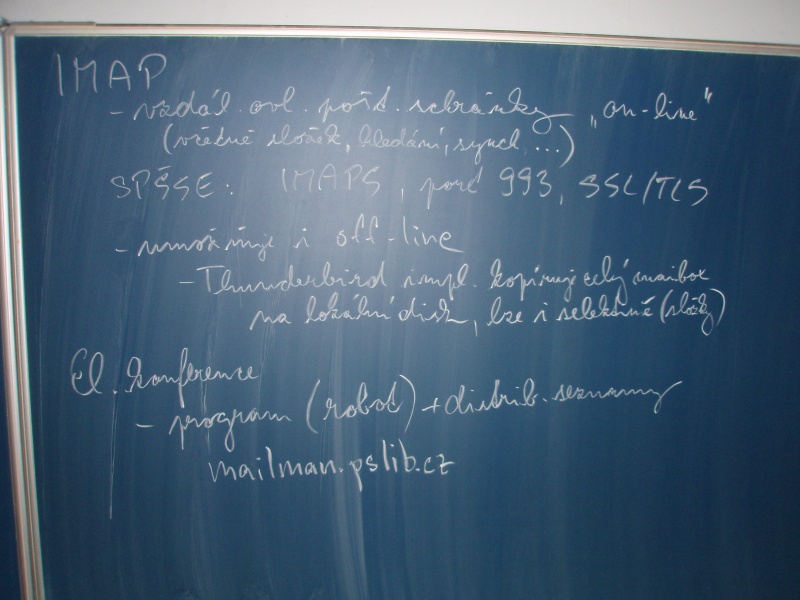 IMAP
- vzdál. ovl. pošt. schránky „on-line"
(včetně složek, hledání, synch ...)
SPŠSE: IMAPS, port 993, SSL/TLS
- umožňuje i off-line
- Thunderbird impl. kopíruje celý mailbox
na lokální disk, lze i selektivně (složky)
El. konference
- program (robot) + distrib. seznamy
mailman.pslib.cz